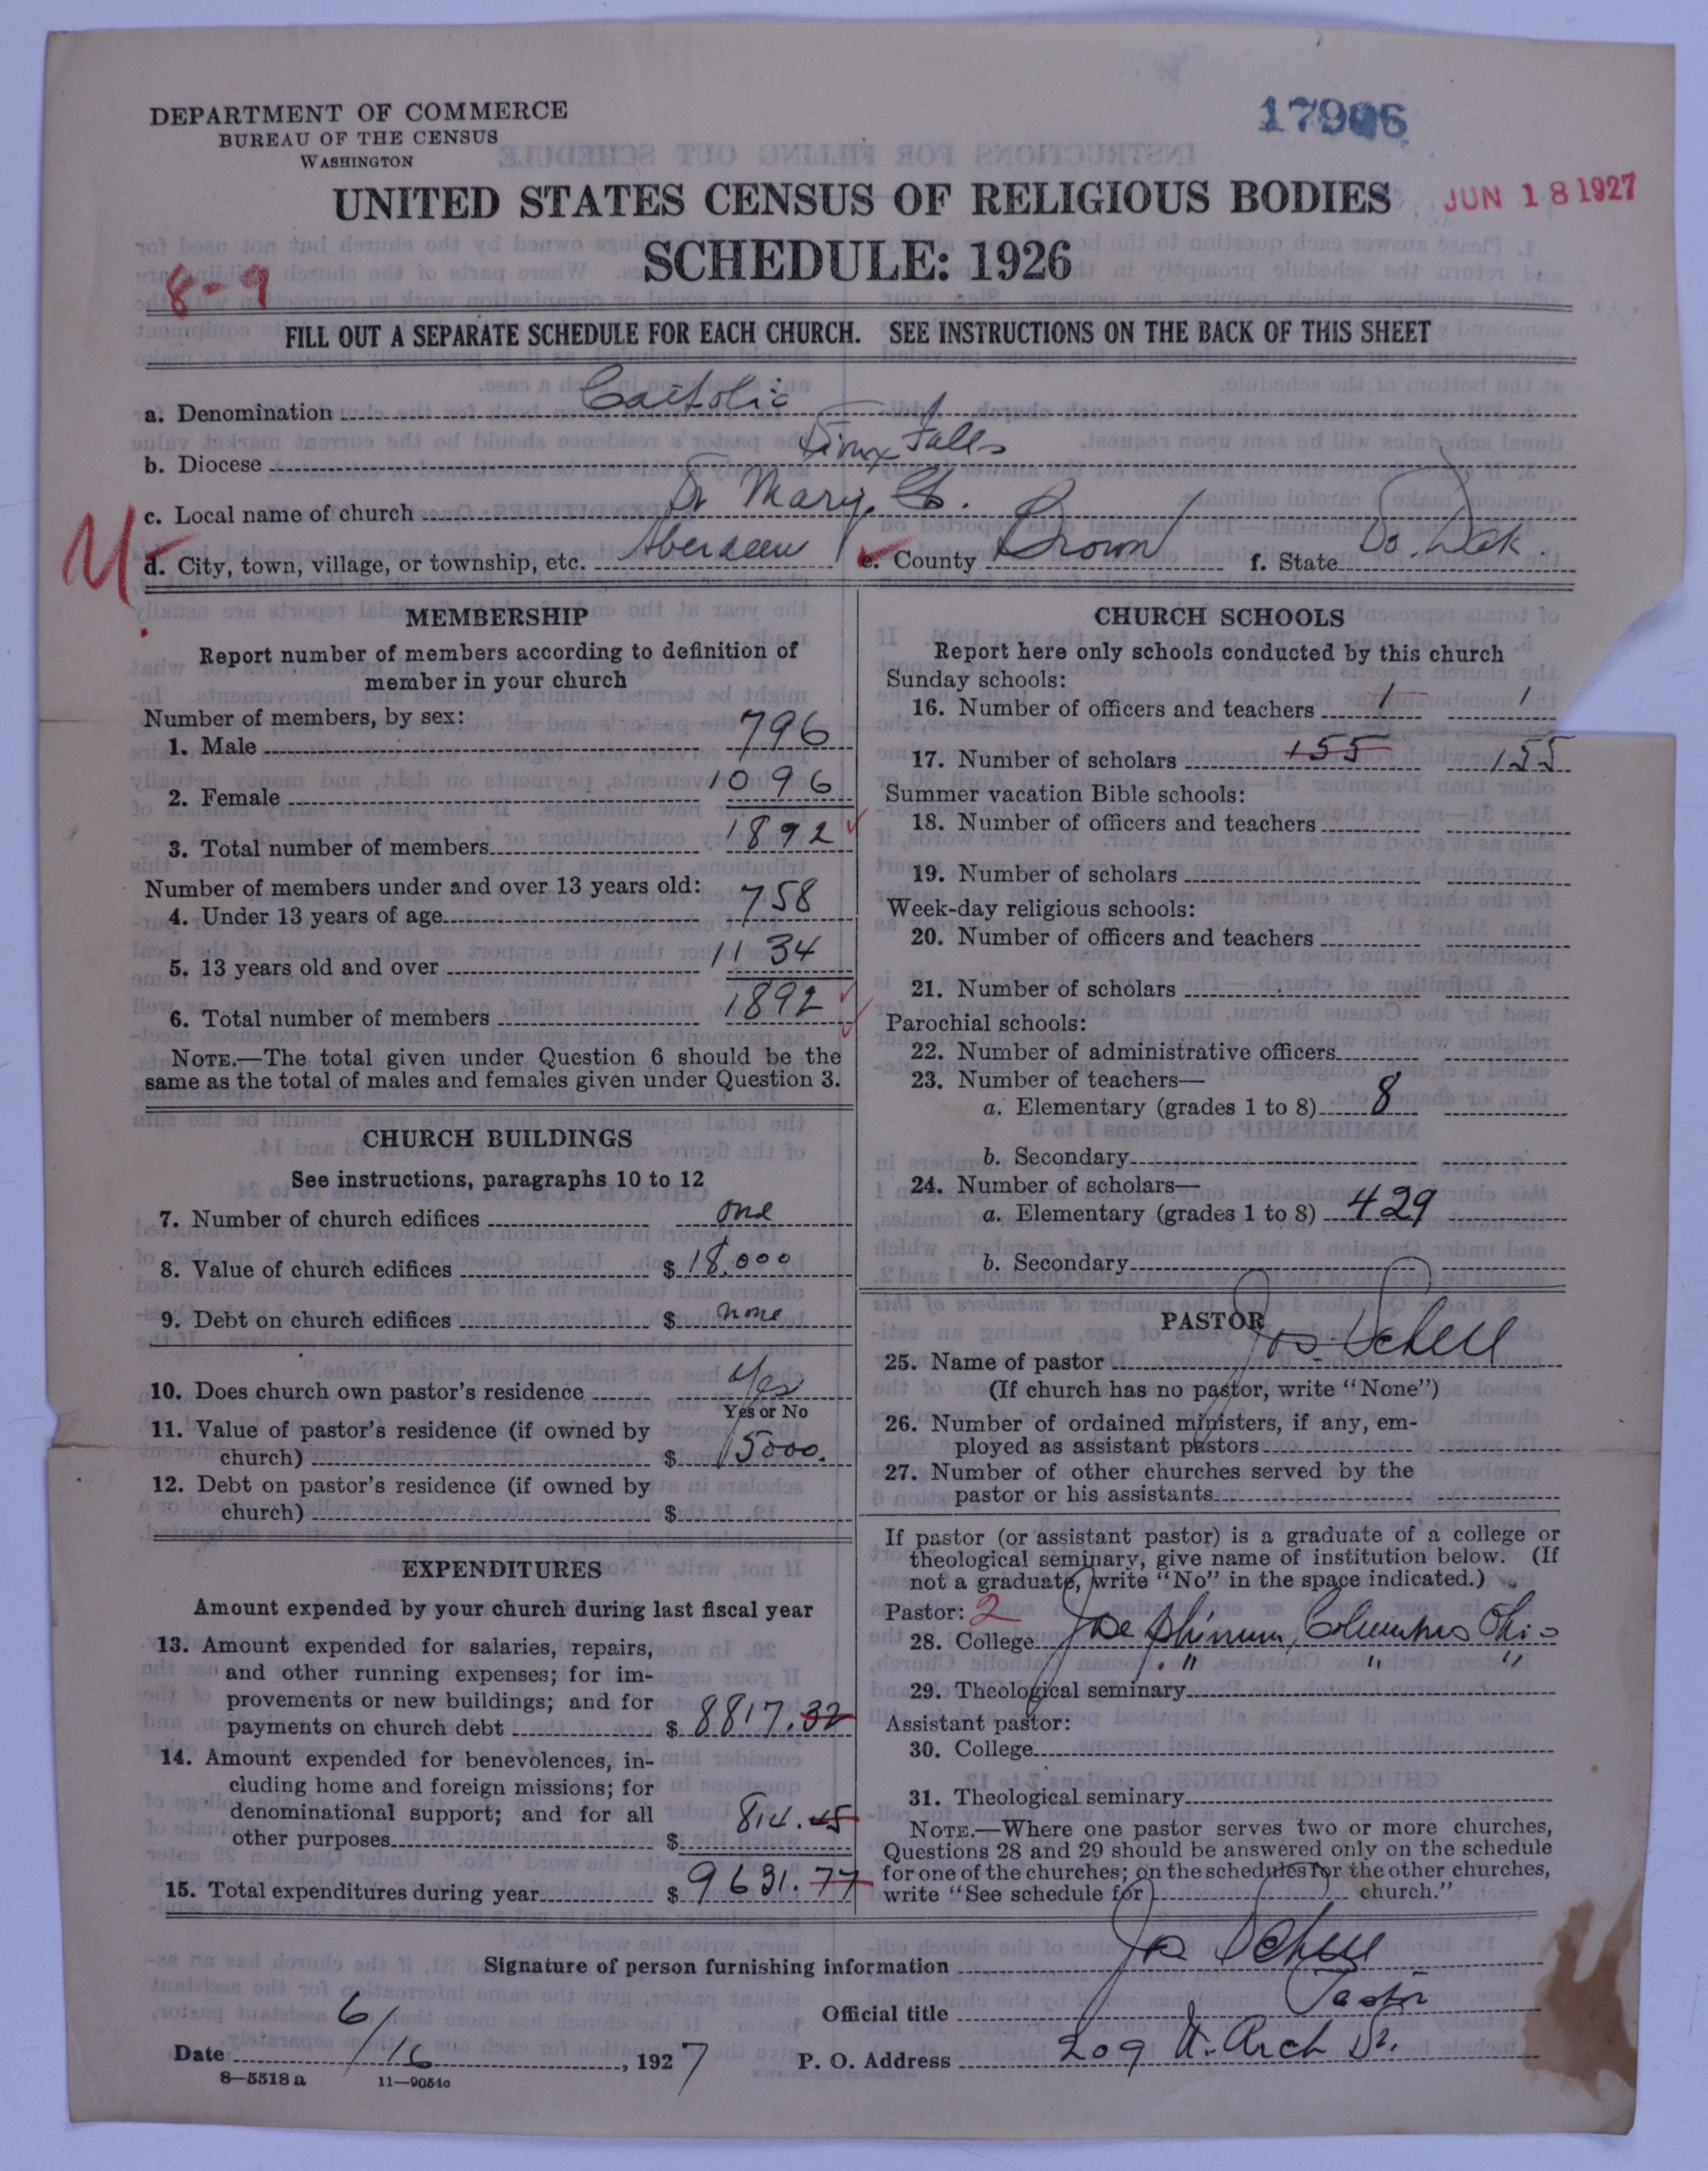 DEPARTMENT OF COMMERCE
BUREAU OF THE CENSUS
WASHINGTON
17906
UNITED STATES CENSUS OF RELIGIOUS BODIES
JUN 18 1927
SCHEDULE: 1926
8-9
FILL OUT A SEPARATE SCHEDULE FOR EACH CHURCH. SEE INSTRUCTIONS ON THE BACK OF THIS SHEET
a. Denomination Catholic
b. Diocese Sioux Falls
c. Local name of church St Mary Ch.
d. City, town, village, or township, etc. Aberdeen e. County Brown f. State So. Dak.
MEMBERSHIP
Report number of members according to definition of
member in your church
Number of members, by sex:
1. Male 796
2. Female 1096
3. Total number of members 1892
Number of members under and over 13 years old:
4. Under 13 years of age 758
5. 13 years old and over 1134
6. Total number of members 1892
NOTE.—The total given under Question 6 should be the
same as the total of males and females given under Question 3.
CHURCH BUILDINGS
See instructions, paragraphs 10 to 12
7. Number of church edifices one
8. Value of church edifices $ 18.000
9. Debt on church edifices $ none
10. Does church own pastor's residence Yes
Yes or No
11. Value of pastor's residence (if owned by
church) $ 5000.
12. Debt on pastor's residence (if owned by
church) $
EXPENDITURES
Amount expended by your church during last fiscal year
13. Amount expended for salaries, repairs,
and other running expenses; for im-
provements or new buildings; and for
payments on church debt $ 8817.32
14. Amount expended for benevolences, in-
cluding home and foreign missions; for
denominational support; and for all
other purposes $ 814.45
15. Total expenditures during year $ 9631.77
CHURCH SCHOOLS
Report here only schools conducted by this church
Sunday schools:
16. Number of officers and teachers 1 1
17. Number of scholars 155 155
Summer vacation Bible schools:
18. Number of officers and teachers
19. Number of scholars
Week-day religious schools:
20. Number of officers and teachers
21. Number of scholars
Parochial schools:
22. Number of administrative officers
23. Number of teachers—
a. Elementary (grades 1 to 8) 8
b. Secondary
24. Number of scholars—
a. Elementary (grades 1 to 8) 429
b. Secondary
PASTOR
25. Name of pastor Jos. Schell
(If church has no pastor, write "None")
26. Number of ordained ministers, if any, em-
ployed as assistant pastors
27. Number of other churches served by the
pastor or his assistants
If pastor (or assistant pastor) is a graduate of a college or
theological seminary, give name of institution below. (If
not a graduate, write "No" in the space indicated.)
Pastor: 2
28. College Columbus Ohio
" " "
29. Theological seminary
Assistant pastor:
30. College
31. Theological seminary
NOTE.—Where one pastor serves two or more churches,
Questions 28 and 29 should be answered only on the schedule
for one of the churches; on the schedules for the other churches,
write "See schedule for church."
Signature of person furnishing information Jos Schell
Official title Pastor
Date 6/16, 1927 P. O. Address 209 N. Arch St.
8—5518 a 11—9054c